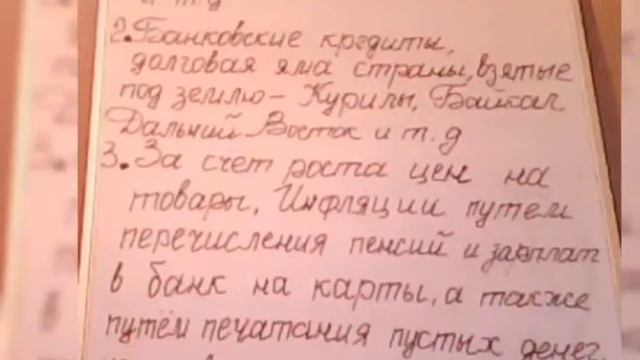 и т.д
2. Банковские кредиты,
долговая яма страны, взятые
под землю - Курилы, Байкал
Дальний Восток и т.д
3. За счет роста цен на
товары, Инфляции путем
перечисления пенсий и зарплат
в банк на карты, а также
путём печатания пустых денег,